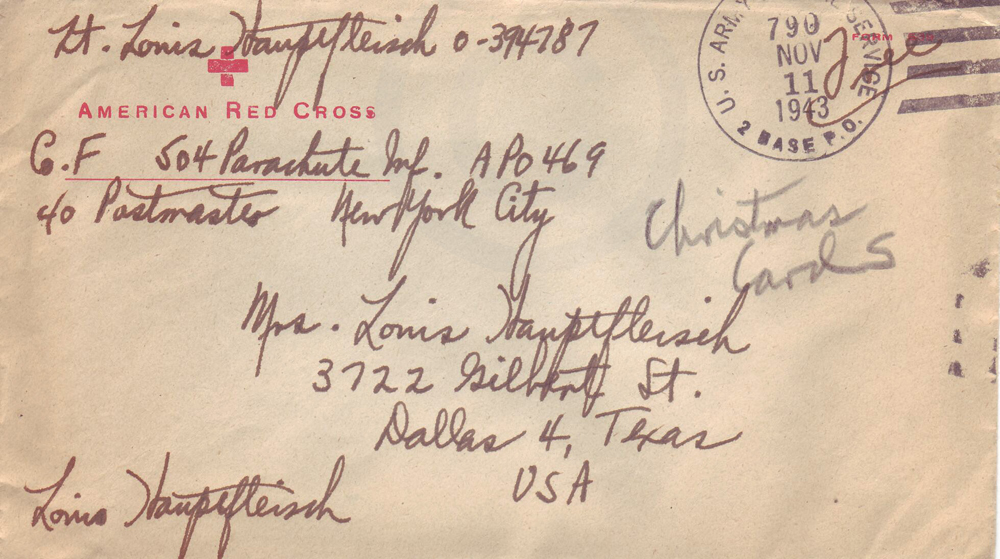 Lt. Louis Hauptfleisch 0-394787
AMERICAN RED CROSS
G.F 504 Parachute Inf. APO 469
c/o Postmaster New York City
U.S. ARMY SERVICE
790
NOV
11
1943
2 BASE P.O.
Free
Christmas
Cards
Mrs. Louis Hauptfleisch
3722 Gilbert St.
Dallas 4, Texas
USA
Louis Hauptfleisch